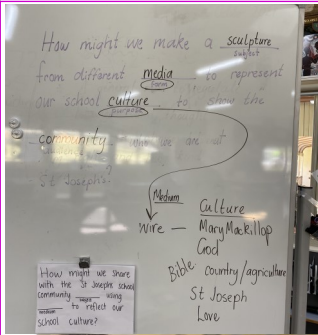 How might we make a sculpture
subject
from different media to represent
form
our school culture to show the
purpose
community who we are at
audience
St Joseph's?
Medium
Wire —
Culture
Mary Mackillop
God
Bible country/agriculture
St Joseph
Love
How might we share
with the St Josephs school
community using
medium to reflect our
school culture?